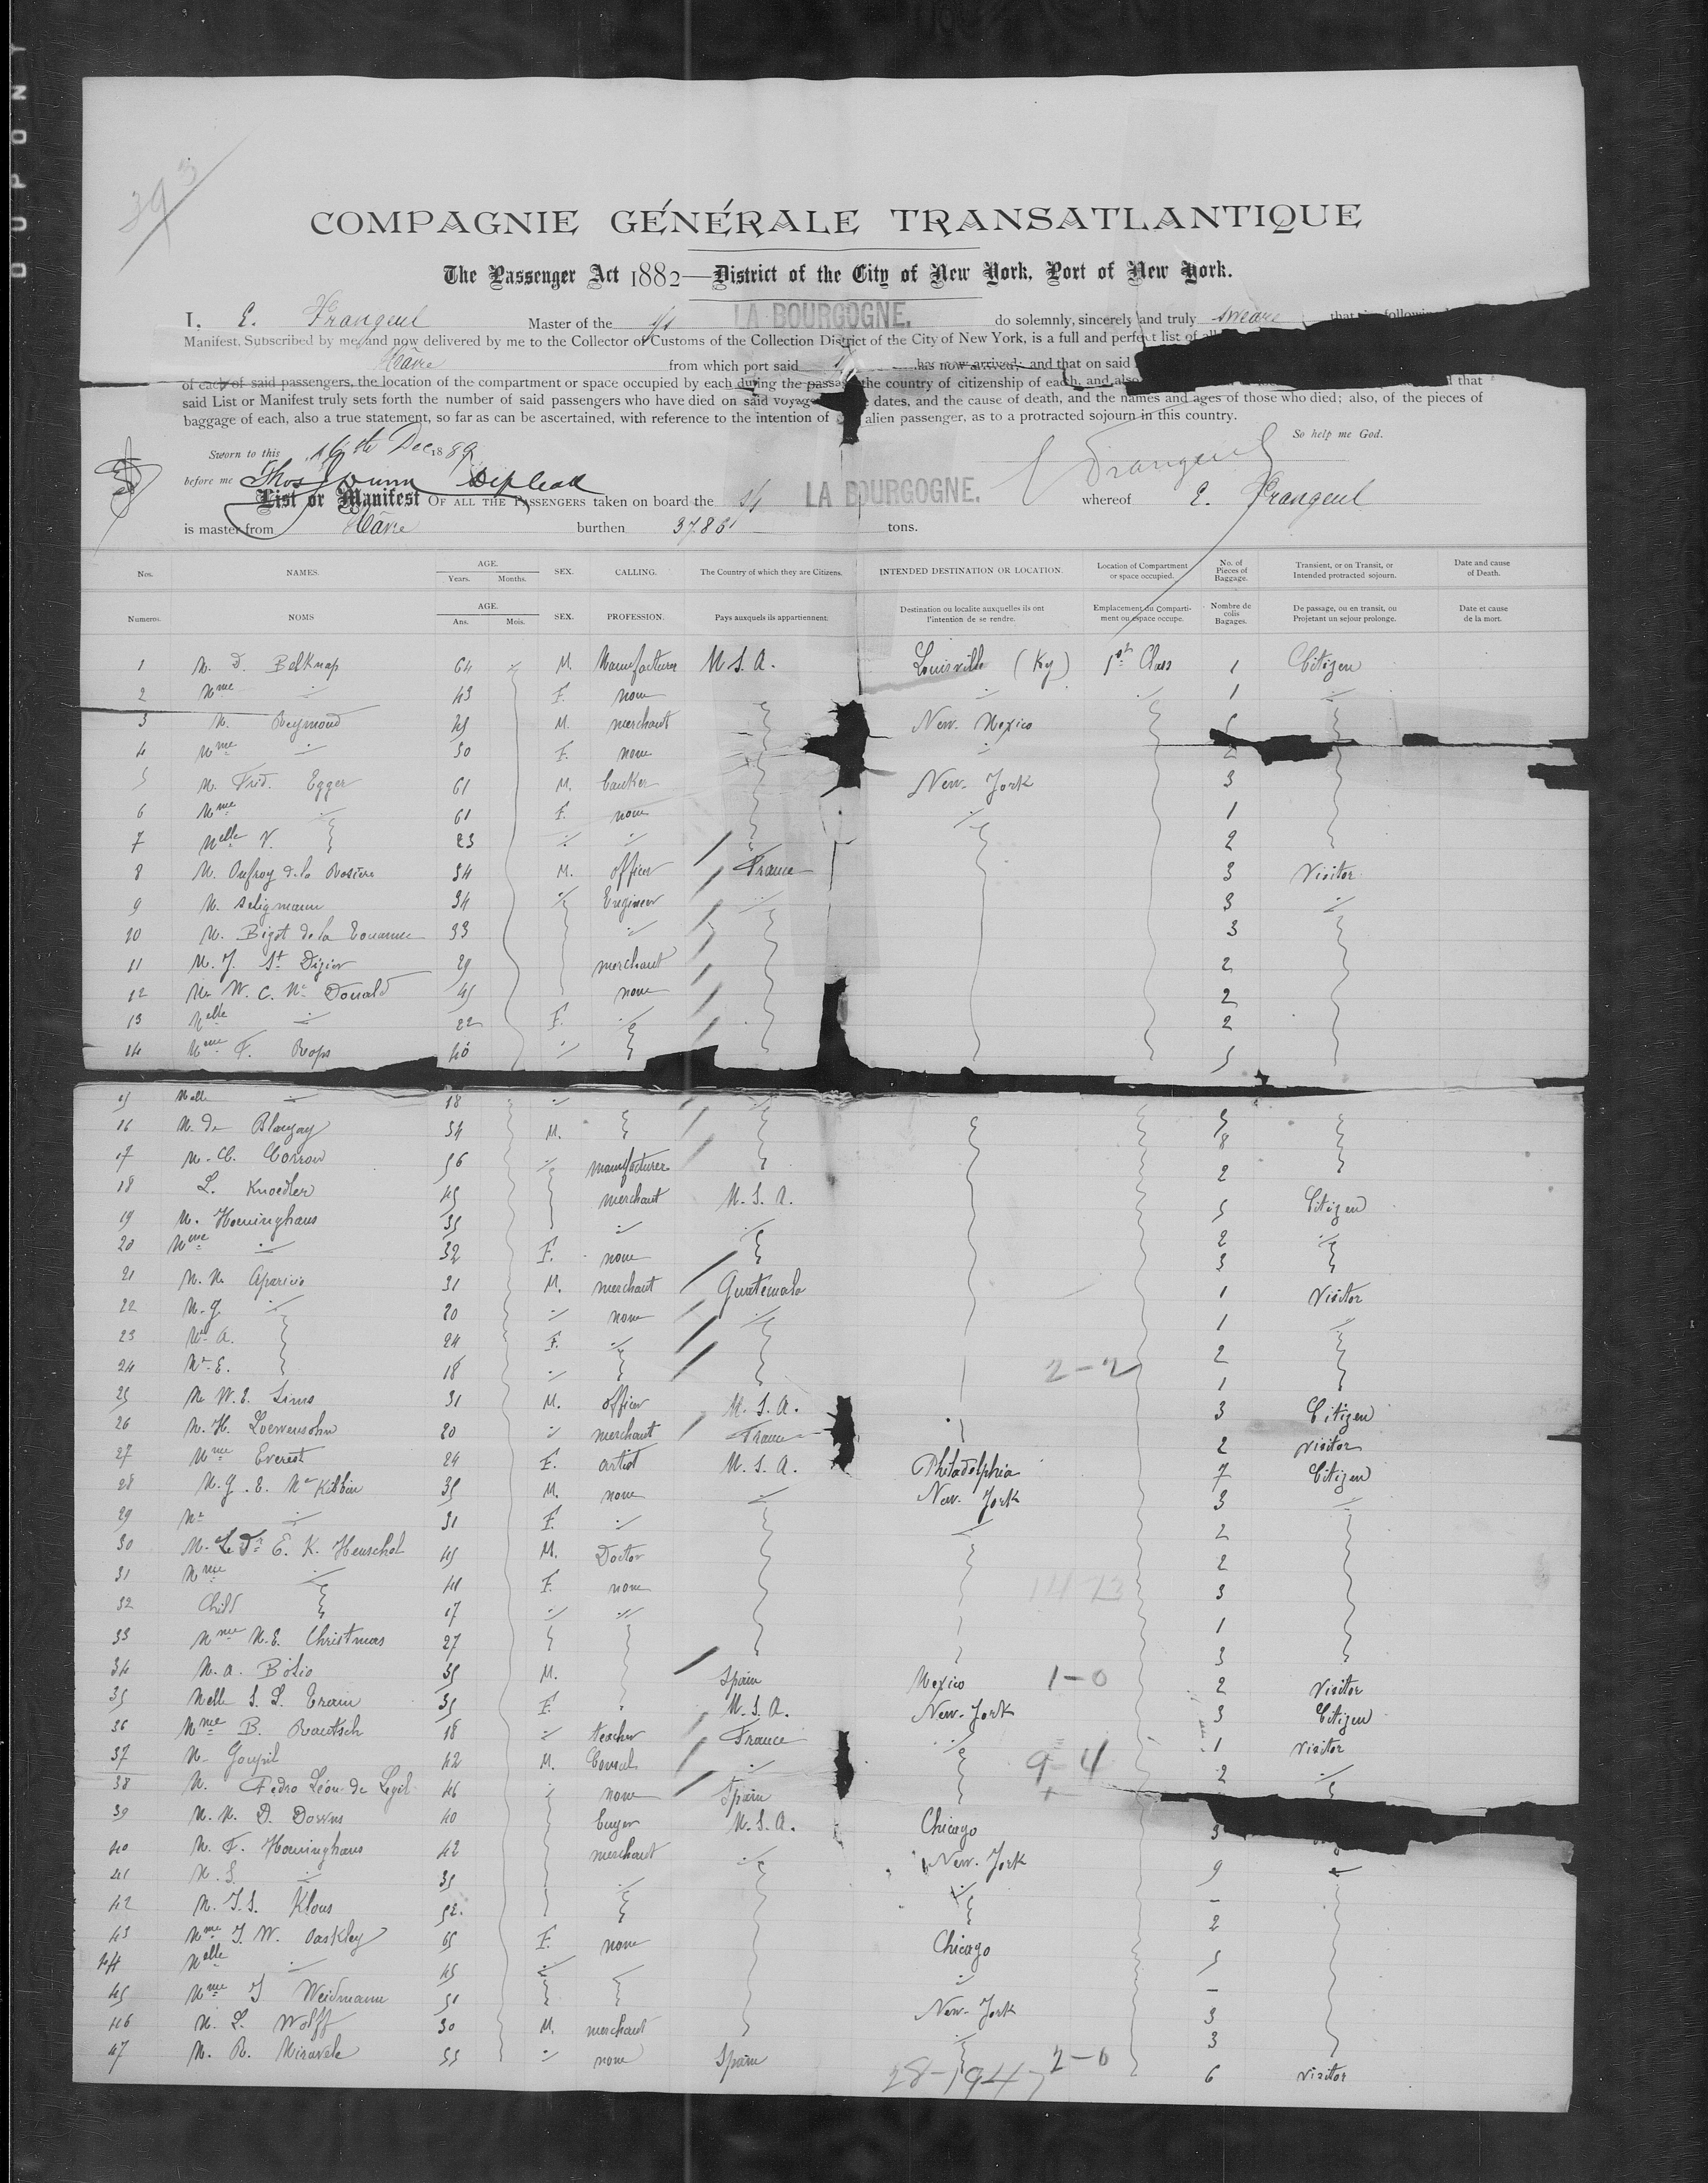 DUPONY
393
COMPAGNIE GÉNÉRALE TRANSATLANTIQUE
The Passenger Act 1882—District of the City of New York, Port of New York.
I, E. Frangeul Master of the s/s LA BOURGOGNE. do solemnly, sincerely and truly sweare that the following
Manifest, Subscribed by me, and now delivered by me to the Collector of Customs of the Collection District of the City of New York, is a full and perfect list of all
Hâvre from which port said has now arrived; and that on said
of each of said passengers, the location of the compartment or space occupied by each during the passage the country of citizenship of each, and also that
said List or Manifest truly sets forth the number of said passengers who have died on said voyage dates, and the cause of death, and the names and ages of those who died; also, of the pieces of
baggage of each, also a true statement, so far as can be ascertained, with reference to the intention of alien passenger, as to a protracted sojourn in this country.
So help me God.
Sworn to this 16th Dec 1889
before me Thos Dunn Frangeul
List or Manifest OF ALL THE PASSENGERS taken on board the s/s LA BOURGOGNE. whereof E. Frangeul
is master from Hâvre burthen 37861 tons.
Nos. NAMES. AGE. Years. Months. SEX. CALLING. The Country of which they are Citizens. INTENDED DESTINATION OR LOCATION. Location of Compartment or space occupied. No. of Pieces of Baggage. Transient, or on Transit, or Intended protracted sojourn. Date and cause of Death.
Numeros. NOMS AGE. Ans. Mois. SEX. PROFESSION. Pays auxquels ils appartiennent. Destination ou localite auxquelles ils ont l'intention de se rendre. Emplacement du Compartiment ou espace occupe. Nombre de colis Bagages. De passage, ou en transit, ou Projetant un sejour prolonge. Date et cause de la mort.
1 M. D. Belknap 64 M. Manufacturer U.S.A. Louisville (Ky) 1st Class 1 Citizen
2 Mme 43 F. none 1
3 M. Reymond 45 M. merchant New Mexico
4 Mme 30 F. none 2
5 M. Fréd. Egger 61 M. banker New-York 3
6 Mme 61 F. none 1
7 Melle V. 23 2
8 M. Onfroy de la Rosière 34 M. officer France 3 Visitor
9 M. Seligmann 34 Engineer 3
10 M. Bigot de la Touanne 33 3
11 M. J. St Dizier 29 merchant 2
12 Mr W. C. Mc Donald 45 none 2
13 Melle 22 F. 2
14 Mme F. Rops 40 5
15 Melle 18 5
16 M. de Blangay 34 M. 8
17 M. C. Corron 56 manufacturer 2
18 L. Knoedler 45 merchant U.S.A. 5 Citizen
19 M. Hoeninghaus 35 2
20 Mme 32 F. none 3
21 M. M. Aparicio 31 M. merchant Guatemala 1 Visitor
22 M. J. 20 none 1
23 Me A. 24 F. 2
24 Me E. 18 2-2 1
25 M. W. E. Sims 31 M. officer U.S.A. 3 Citizen
26 M. H. Loewensohn 20 merchant France 2 Visitor
27 Mme Everest 24 F. artist U.S.A. Philadelphia 7 Citizen
28 M. J. E. Mc Kibbin 35 M. none New-York 3
29 Me 31 F. 2
30 M. Le Dr E. K. Henschel 45 M. Doctor 2
31 Mme 41 F. none 3
32 Child 17 1
33 Mme M. E. Christmas 27 3
34 M. A. Bolio 35 M. Spain Mexico 1-0 2 Visitor
35 Melle S. L. Train 35 F. U.S.A. New-York 3 Citizen
36 Mme B. Rautsch 18 teacher France 1 Visitor
37 M. Goupil 42 M. Consul 9-4 2
38 M. Pedro Léon de 46 none Spain
39 M. M. D. Downs 40 buyer U.S.A. Chicago 3
40 M. F. Hoeninghaus 42 merchant New-York 9
41 M. S. 35 -
42 M. J. S. Klous 52 2
43 Mme J. W. Oaskley 65 F. none Chicago 5
44 Melle 45 -
45 Mme J Weidmann 51 New-York 3
46 M. L. Wolff 30 M. merchant 3
47 M. R. Miravele 55 none Spain 2-0 6 Visitor
28-1947